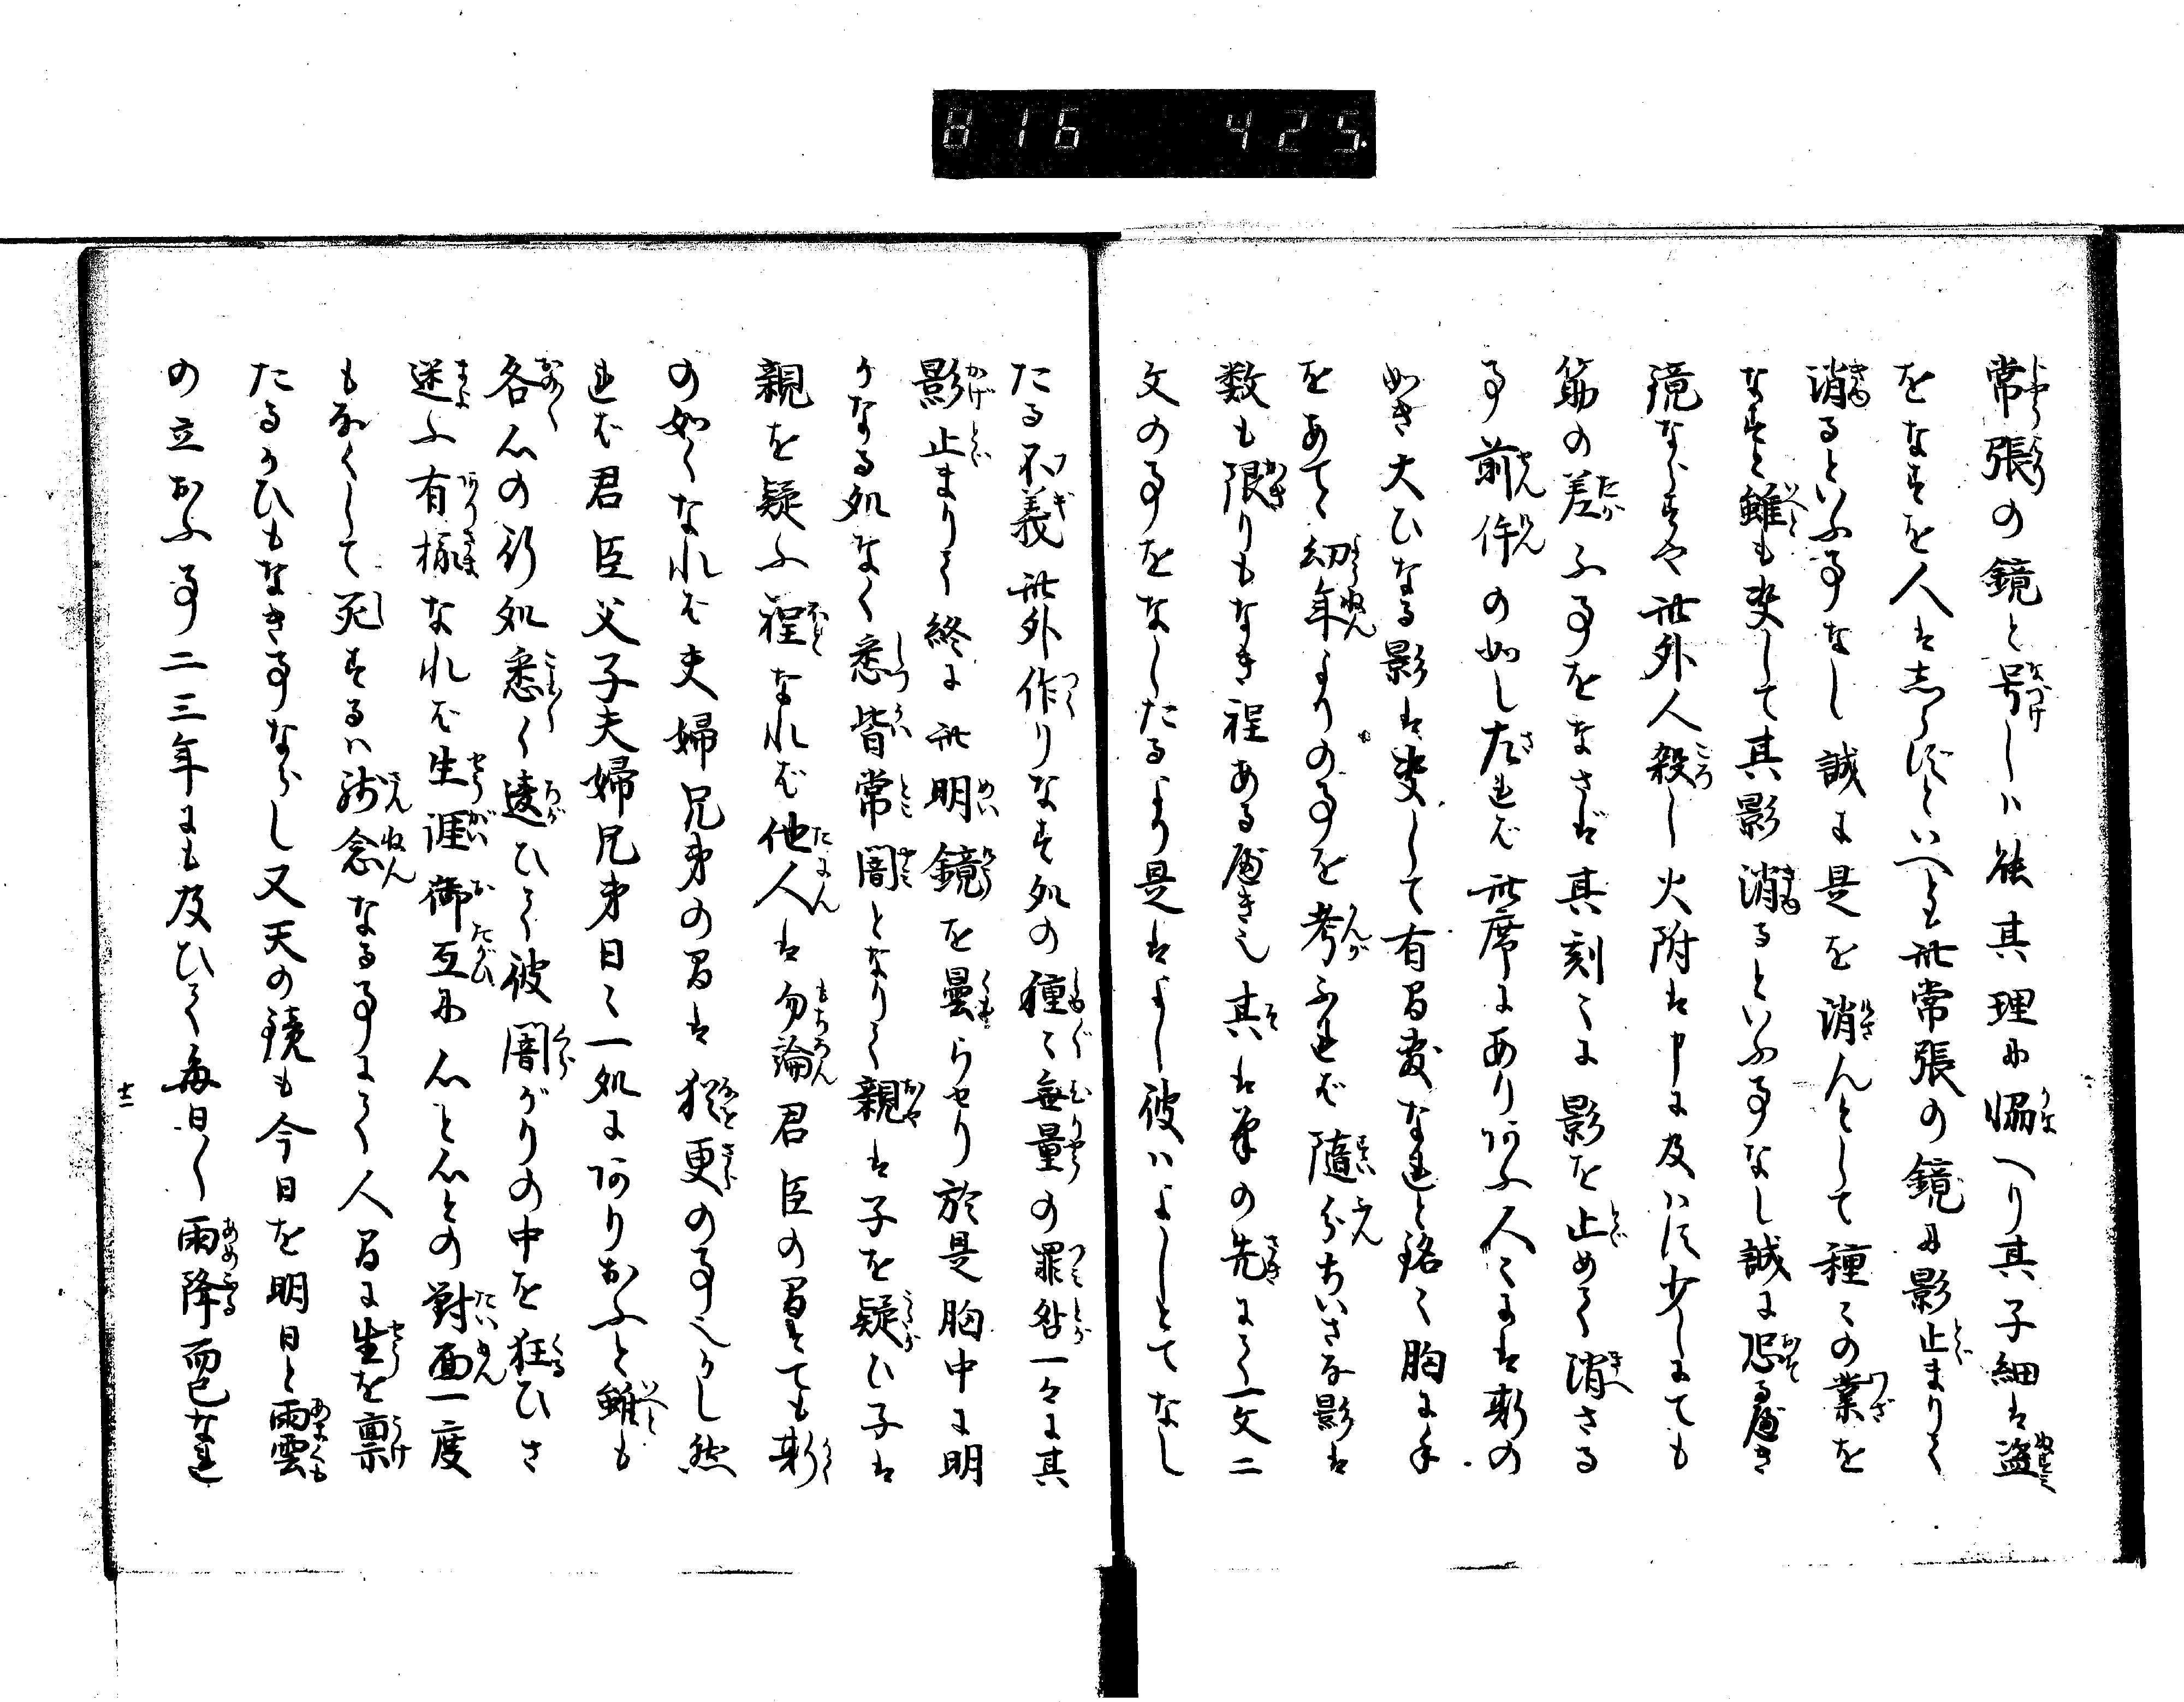 816 425
常張の鏡と号しハ能其理に協へり其子細は盗
をなすを人はしらずといへとも此常張の鏡に影止まりて
消るといふ事なし誠に是を消んとして種々の業を
なすと雖も決して其影消るといふ事なし誠に恐るべき
鏡ならずや此外人殺し火附は申に及ハず少しにても
筋の差ふ事をなさば其刻々に影を止めて消さる
事前件の如し左れば此席にあり合ふ人々には斯の
如き大ひなる影は決して有間敷なれと銘々胸に手
をあてゝ幼年よりの事を考ふれば随分ちいさな影は
数も限りもなき程あるべき也其は筆の先にて一文二
文の事をなしたるより是はよし彼ハよしとてなし
たる不義此外作りなす処の種々無量の罪咎一々に其
影止まりて終に此明鏡を曇らせり於是胸中に明
りなる処なく悉皆常闇となりて親は子を疑ひ子は
親を疑ふ程なれば他人は勿論君臣の間にても斯
の如くなれば夫婦兄弟の間は猶更の事也かし然
れば君臣父子夫婦兄弟日々一処に住りあふと雖も
各心の行処悉く違ひて彼闇がりの中を狂ひさ
迷ふ有様なれば生涯御互に心と心との対面一度
もなくして死するハ残念なる事にて人間に生を禀
たるかひもなき事ならし又天の鏡も今日を明日と雨雲
の立おふ事二三年にも及ひて毎日〱雨降而已なれ
十二